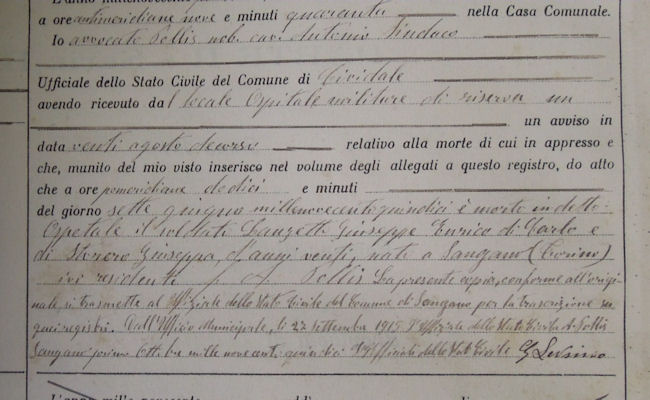 a ore antimeridiane nove e minuti quaranta nella Casa Comunale.
Io avvocato Pollis nob. cav. Antonio Sindaco
Ufficiale dello Stato Civile del Comune di Cividale
avendo ricevuto dal locale Ospitale militare di riserva un
un avviso in
data venti agosto decorso relativo alla morte di cui in appresso e
che, munito del mio visto inserisco nel volume degli allegati a questo registro, do atto
che a ore pomeridiane dodici e minuti
del giorno sette giugno millenovecentoquindici è morto in detto
Ospitale il soldato Giuseppe Enrico di Carlo e
di Giuseppa, d'anni venti, nato a Sangano (Torino)
ivi residente Pollis La presente copia, conforme all'origi-
nale si trasmette al Uffiziale dello Stato Civile del Comune di Sangano per la trascrizione su
quei registri. Dall'Ufficio Municipale, li 27 settembre 1915. L'Uffiziale dello Stato Civile A. Pollis
Sangano primo Ottobre mille novecento quindici L'Ufficiale dello Stato Civile